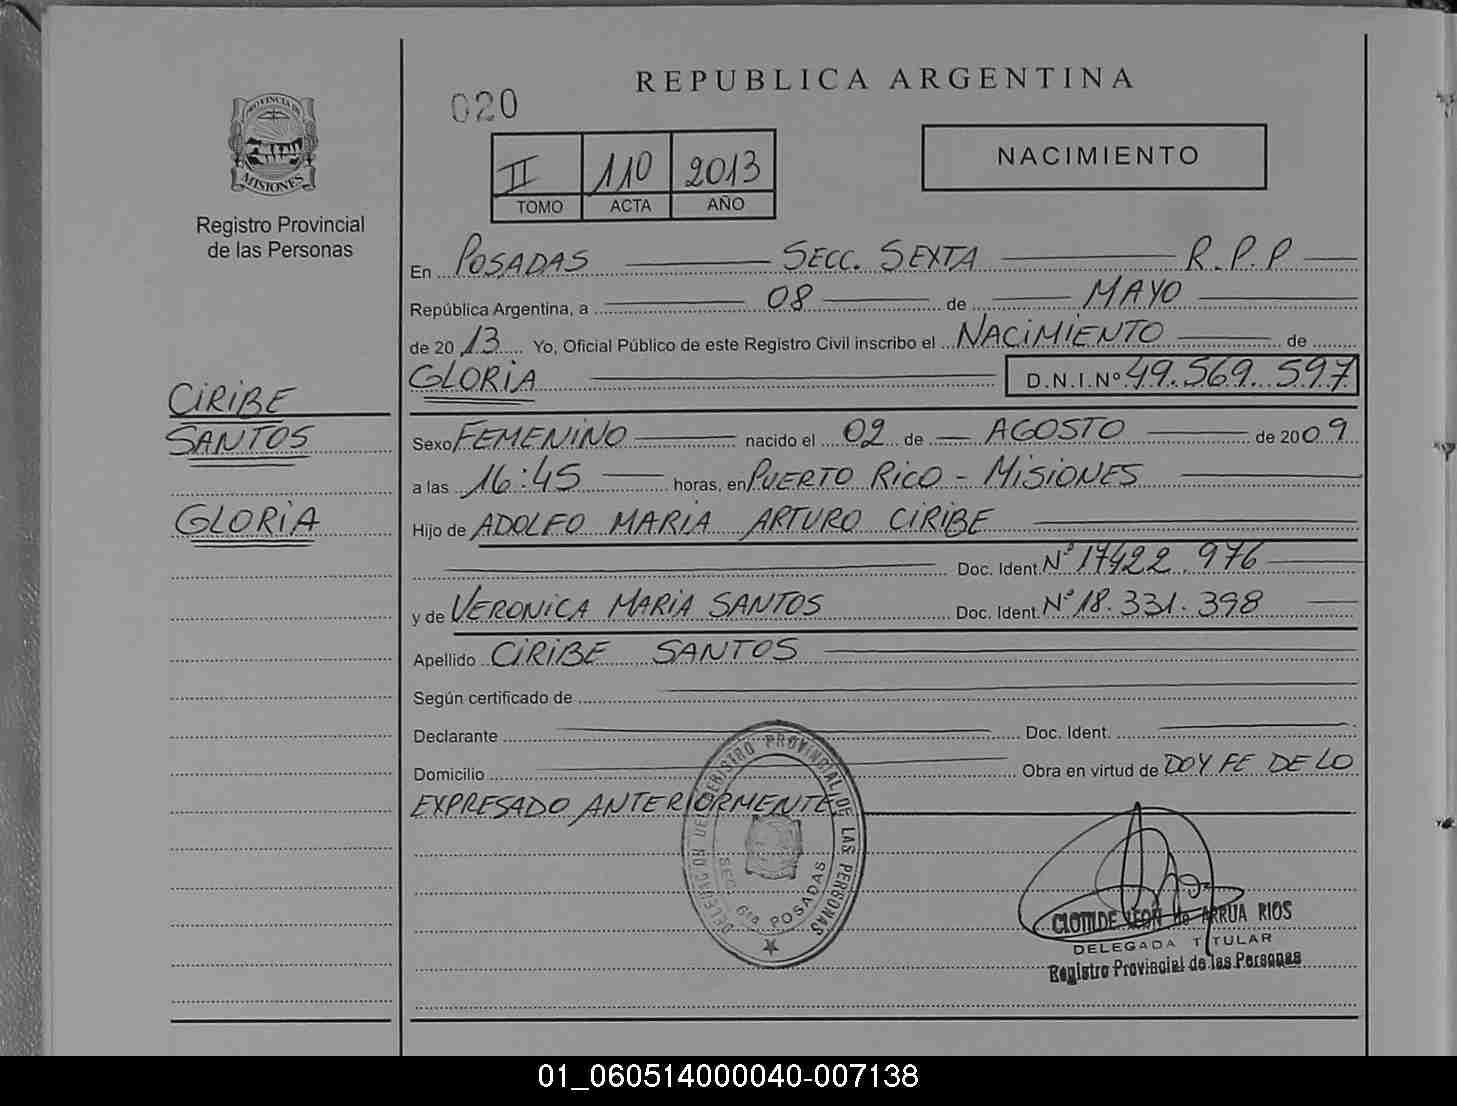 REPUBLICA ARGENTINA
020
PROVINCIA DE
MISIONES
Registro Provincial
de las Personas
II 110 2013
TOMO ACTA AÑO
NACIMIENTO
En POSADAS SECC. SEXTA R.P.P
República Argentina, a 08 de MAYO
de 20 13 Yo, Oficial Público de este Registro Civil inscribo el NACIMIENTO de
GLORIA D.N.I.Nº 49.569.597
CIRIBE
SANTOS
GLORIA
Sexo FEMENINO nacido el 02 de AGOSTO de 2009
a las 16:45 horas, en PUERTO RICO - MISIONES
Hijo de ADOLFO MARIA ARTURO CIRIBE
Doc. Ident. Nº 17422.976
y de VERONICA MARIA SANTOS Doc. Ident. Nº 18.331.398
Apellido CIRIBE SANTOS
Según certificado de
Declarante Doc. Ident.
Domicilio Obra en virtud de DOY FE DE LO
EXPRESADO ANTERIORMENTE
DELEGACION DEL REGISTRO PROVINCIAL DE LAS PERSONAS
SEC. 6ta POSADAS
CLOTILDE LEON de ARRUA RIOS
DELEGADA TITULAR
Registro Provincial de las Personas
01_060514000040-007138